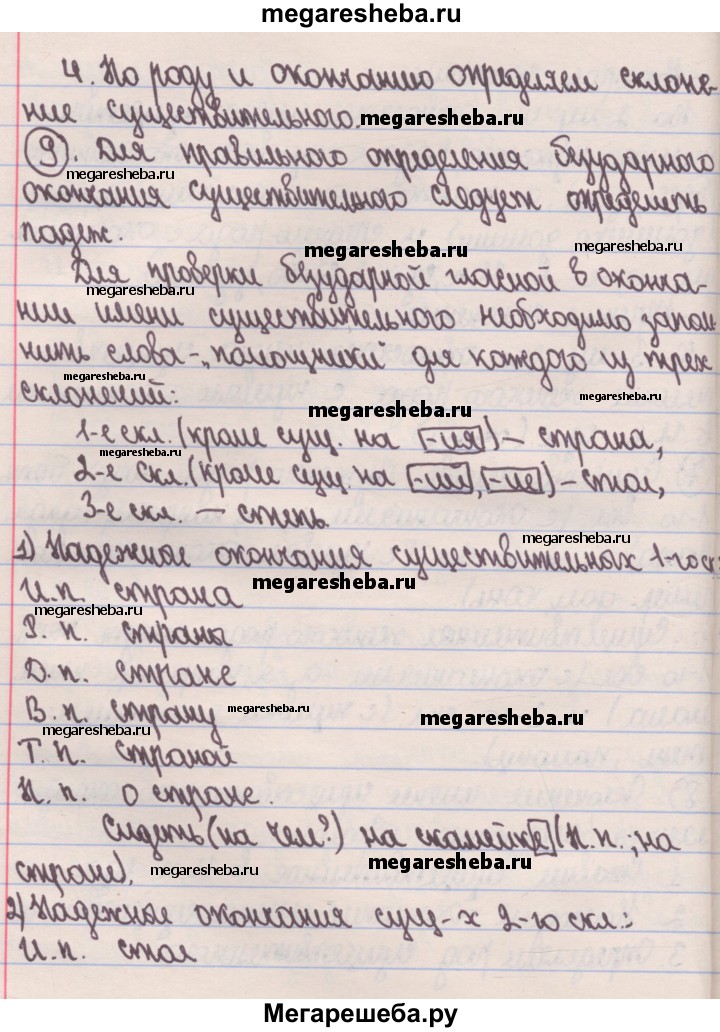 megaresheba.ru
4. По роду и окончанию определяем склоне-
ние существительного.
megaresheba.ru
9. Для правильного определения безударного
megaresheba.ru
окончания существительного следует определить
падеж.
megaresheba.ru
megaresheba.ru
Для проверки безударной гласной в оконча-
megaresheba.ru
нии имени существительного необходимо запом-
нить слова-„помощники" для каждого из трех
megaresheba.ru
склонений:
megaresheba.ru
megaresheba.ru
1-е скл. (кроме сущ. на -ия) – страна,
megaresheba.ru
2-е скл. (кроме сущ. на -ий, -ие) – стол,
3-е скл. – степь.
megaresheba.ru
1) Падежное окончания существительных 1-го ск.:
megaresheba.ru
И.п. страна
megaresheba.ru
Р.п. страны
Д.п. стране
В.п. страну
megaresheba.ru
megaresheba.ru
Т.п. страной
П.п. о стране.
Сидеть (на чем?) на скамейке (П.п.; на
стране).
megaresheba.ru
2) Падежные окончания сущ-х 2-го скл.:
И.п. стол
Мегарешеба.ру